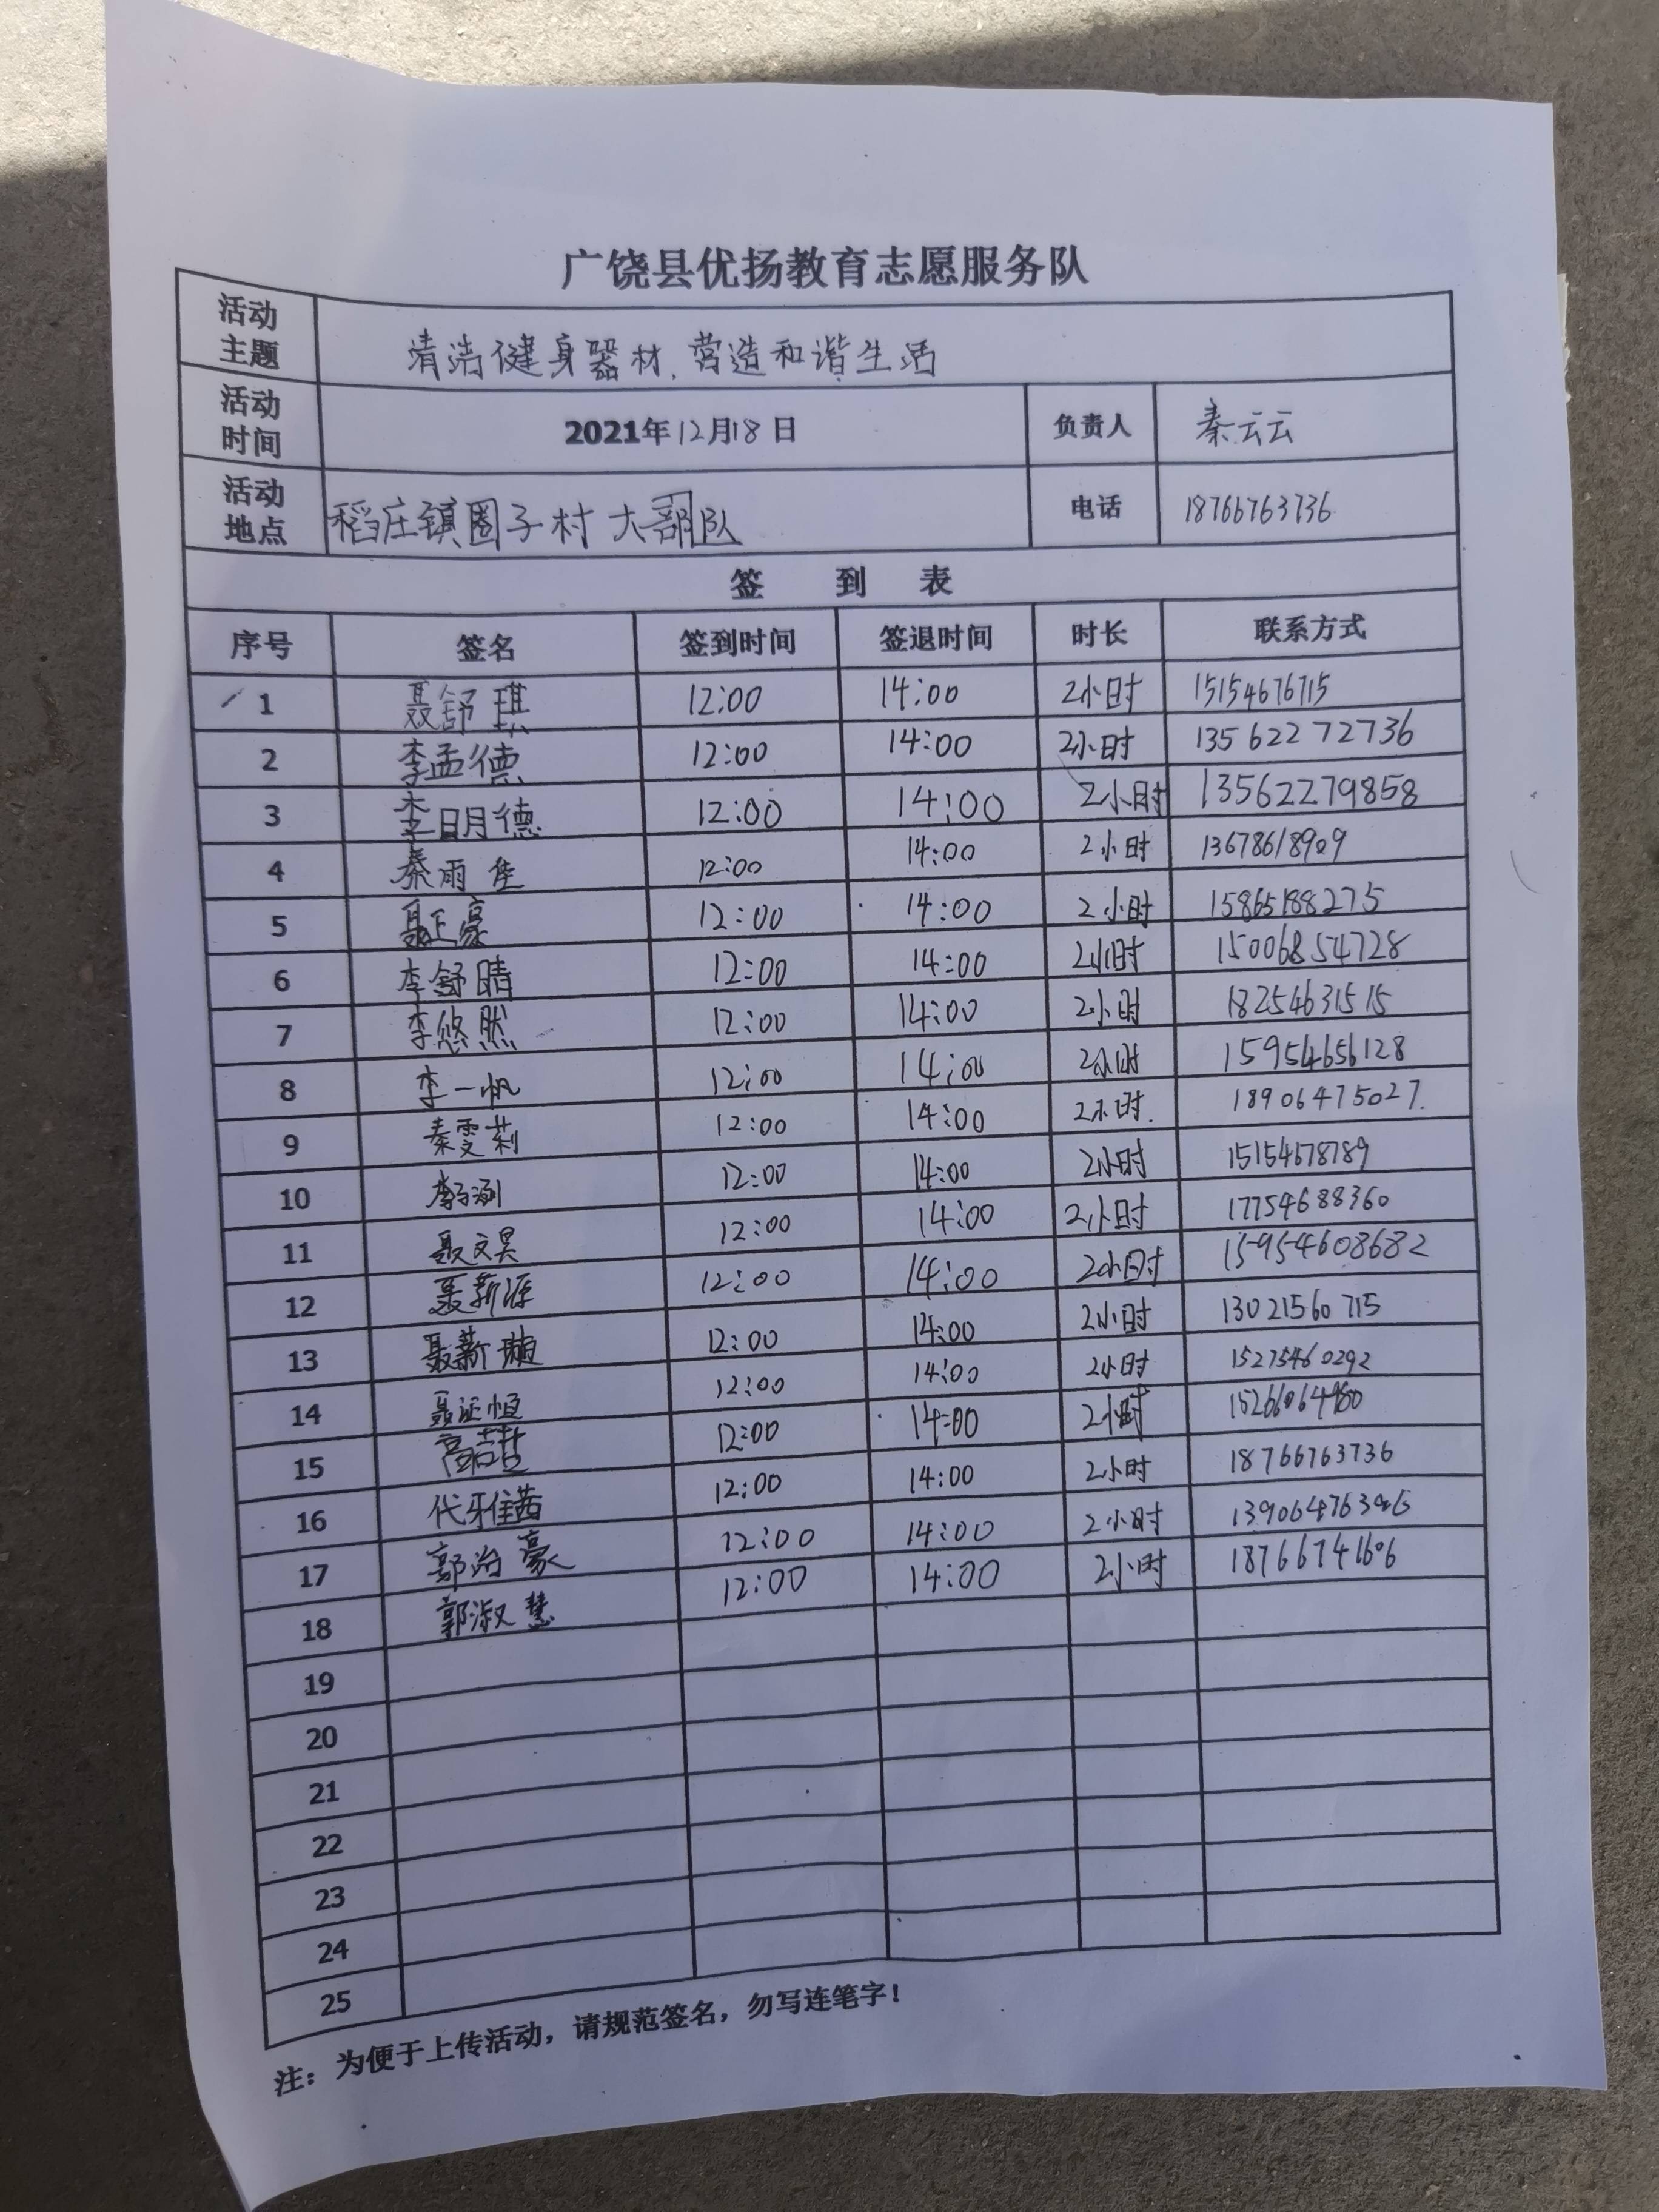 广饶县优扬教育志愿服务队
活动主题 清洁健身器材、营造和谐生活
活动时间 2021年12月18日 负责人 秦云云
活动地点 稻庄镇圈子村大部队 电话 18766763736
签 到 表
序号 签名 签到时间 签退时间 时长 联系方式
1 聂舒琪 12:00 14:00 2小时 15154676715
2 李孟德 12:00 14:00 2小时 13562272736
3 李明德 12:00 14:00 2小时 13562279858
4 秦雨佳 12:00 14:00 2小时 13678618909
5 聂正豪 12:00 14:00 2小时 15865188275
6 李舒晴 12:00 14:00 2小时 15006854728
7 李悠然 12:00 14:00 2小时 18254631515
8 李一帆 12:00 14:00 2小时 15954656128
9 秦雯莉 12:00 14:00 2小时. 18906475027.
10 李子涵 12:00 14:00 2小时 15154678789
11 聂文昊 12:00 14:00 2小时 17754688360
12 聂新源 12:00 14:00 2小时 15954608682
13 聂薪璇 12:00 14:00 2小时 13021560715
14 聂证恒 12:00 14:00 2小时 15275460292
15 高若慧 12:00 14:00 2小时
16 代雅茜 12:00 14:00 2小时 18766763736
17 郭治豪 12:00 14:00 2小时
18 郭淑慧 12:00 14:00 2小时 18766741606
19
20
21
22
23
24
25
注：为便于上传活动，请规范签名，勿写连笔字！